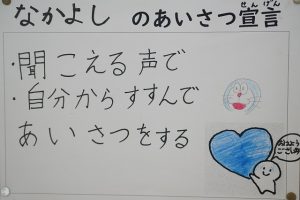 なかよし のあいさつ宣言
せんげん
・聞こえる声で
・自分からすすんで
あいさつをする
おはよう
ございます